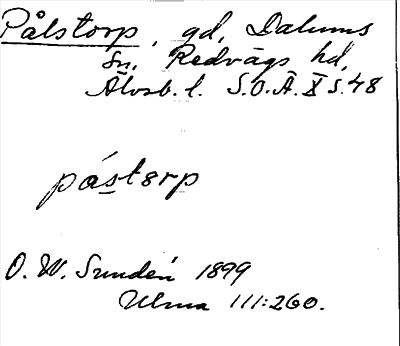 Pålstorp, gd, Dalums
sn. Redvägs hd,
Älvsb. l. S.O.Ä. X s. 48
pástorp
O. W. Sundén 1899
Ulma 111:260.